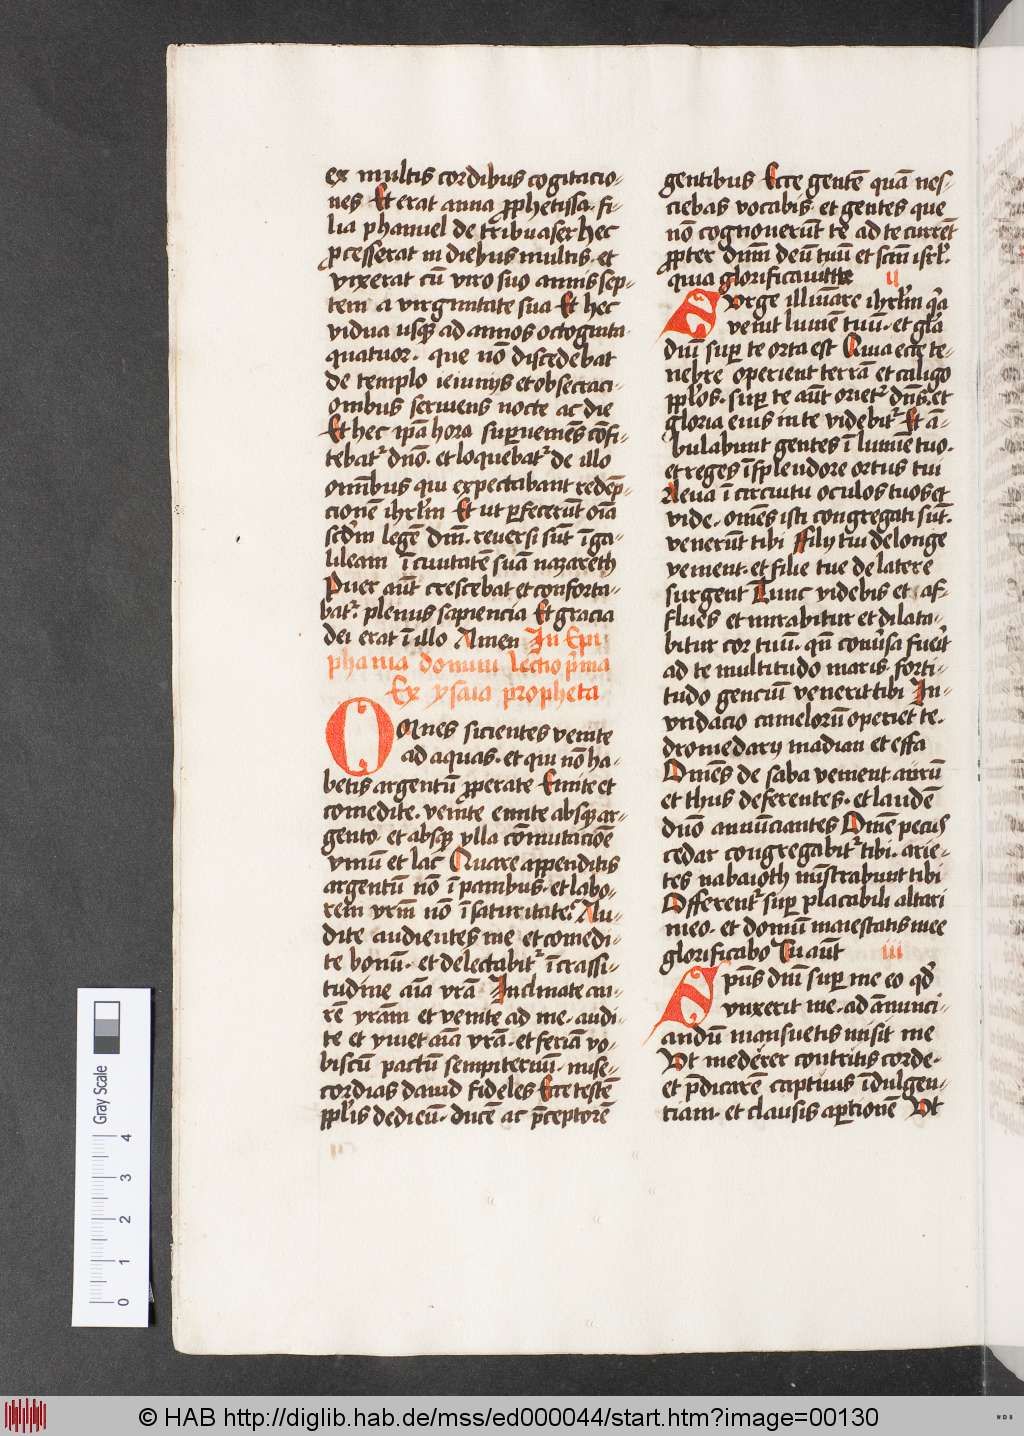 ex multis cordibus cogitacio-
nes Et erat anna ꝓphetissa. fi-
lia phanuel de tribu aser hec
ꝓcesserat in diebus multis. et
vixerat cū viro suo annis sep-
tem a virginitate sua Et hec
vidua usqꝫ ad annos octoginta
quatuor. que nō discedebat
de templo ieiunijs et obsecraci-
onibus serviens nocte ac die
Et hec ip̄a hora supveniēs cōfi-
tebat᷑ dn̄o. et loquebat᷑ de illo
omībus qui expectabant redēp-
cionē ihrl̄m Et ut pfecerūt oīa
scd̄m legē dn̄i. reversi sūt ī ga-
lileam ī civitatē suā nazareth
Puer aūt crescebat et conforta-
bat᷑. plenus sapiencia Et gracia
dei erat ī illo Amen In Epi
phania domini lectio p̄ma
Ex ysaia propheta
OMnes sicientes venite
ad aquas. et qui nō ha-
betis argentū ꝓperate Emite et
comedite. venite emite absqꝫ ar-
gento. et absqꝫ ylla cōmutacione
vinū et lac Quare appenditis
argentū nō ī panibus. et labo-
rem vrm̄ nō ī saturitate. Au-
dite audientes me et comedi-
te bonū. et delectabit᷑ ī crassi-
tudine aīa vrā Inclinate au-
rē vrām et venite ad me. audi-
te et vivet aīa vrā. et feriam vo-
biscū pactū sempiternū. mise-
cordias david fideles Ecce testē
ppl̄is dedi eū. ducē ac p̄ceptorē
gentibus Ecce gentē quā nes-
ciebas vocabis. et gentes que
nō cognoverūt te ad te current
ꝓpter dn̄m deū tuū et sc̄m isrl̄.
quia glorificavit te ii
SUrge illūiare ihrl̄m qa
venit lumē tuū. et glīa
dn̄i sup te orta est Quia ecce te-
nebre operient terrā et caligo
ppl̄os. sup te aūt oriet᷑ dn̄s. et
gloria eius in te videbit᷑ Et ā-
bulabunt gentes ī lumine tuo.
et reges ī splendore ortus tui
Leva ī circuitu oculos tuos et
vide. omēs isti congregati sūt.
venerūt tibi ffilij tui de longe
venient. et filie tue de latere
surgent Tunc videbis et af-
flues et mirabitur et dilata-
bitur cor tuū. qn̄ conv̄sa fuerit
ad te multitudo maris. forti-
tudo genciū venerit tibi In-
undacio camelorū operiet te.
dromedarij madian et effa
Omēs de saba venient aurū
et thus deferentes. et laudē
dn̄o annūciantes Omē pecus
cedar congregabit᷑ tibi. arie-
tes nabaioth mīstrabunt tibi
Offerent᷑ sup placabili altari
meo. et domū maiestatis mee
glorificabo Tu aūt iii
SPūs dn̄i sup me eo qd̄
unxerit me. ad anunci-
andū mansuetis misit me
Vt mederer contritis corde.
et p̄dicarē captivis īdulgen-
tiam. et clausis aptionē Vt
Gray Scale
4
3
2
1
0
© HAB http://diglib.hab.de/mss/ed000044/start.htm?image=00130